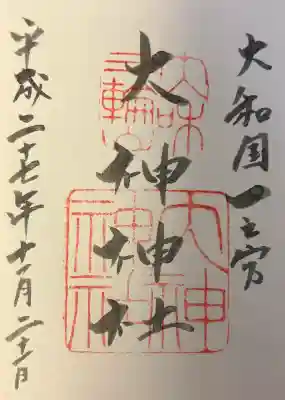 大和国一之宮
大神神社
平成二十七年十一月二十一日
大神神社